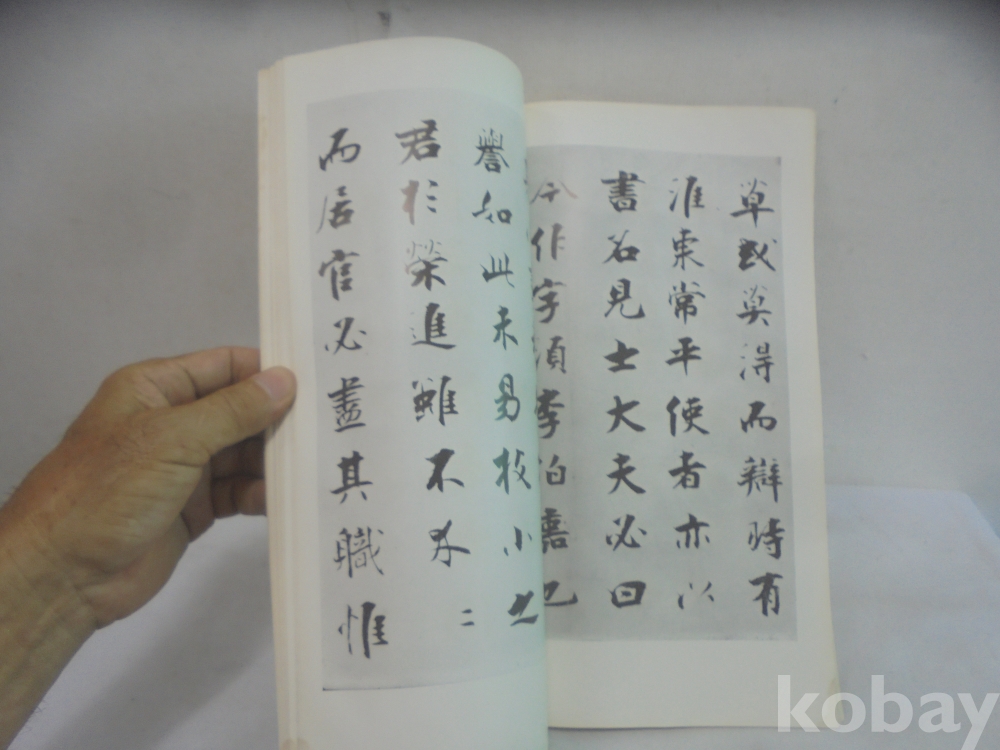 草或莫得而辯時有
淮東常平使者亦以
書名見士大夫必曰
作字須李泊嘉
譽如此未易小
君於榮進雖不求二
而居官必盡其職惟
kobay